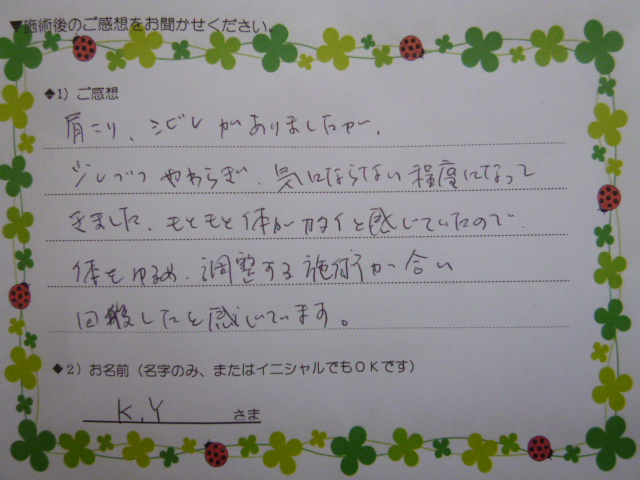 ▼施術後のご感想をお聞かせください。
◆1）ご感想
肩こり、シビレがありましたが、
少しづつやわらぎ、気にならない程度になって
きました、もともと体がカタイと感じていたので、
体をゆるめ、調整する施術が合い
回復したと感じています。
◆2）お名前（名字のみ、またはイニシャルでもＯＫです）
K.Y さま